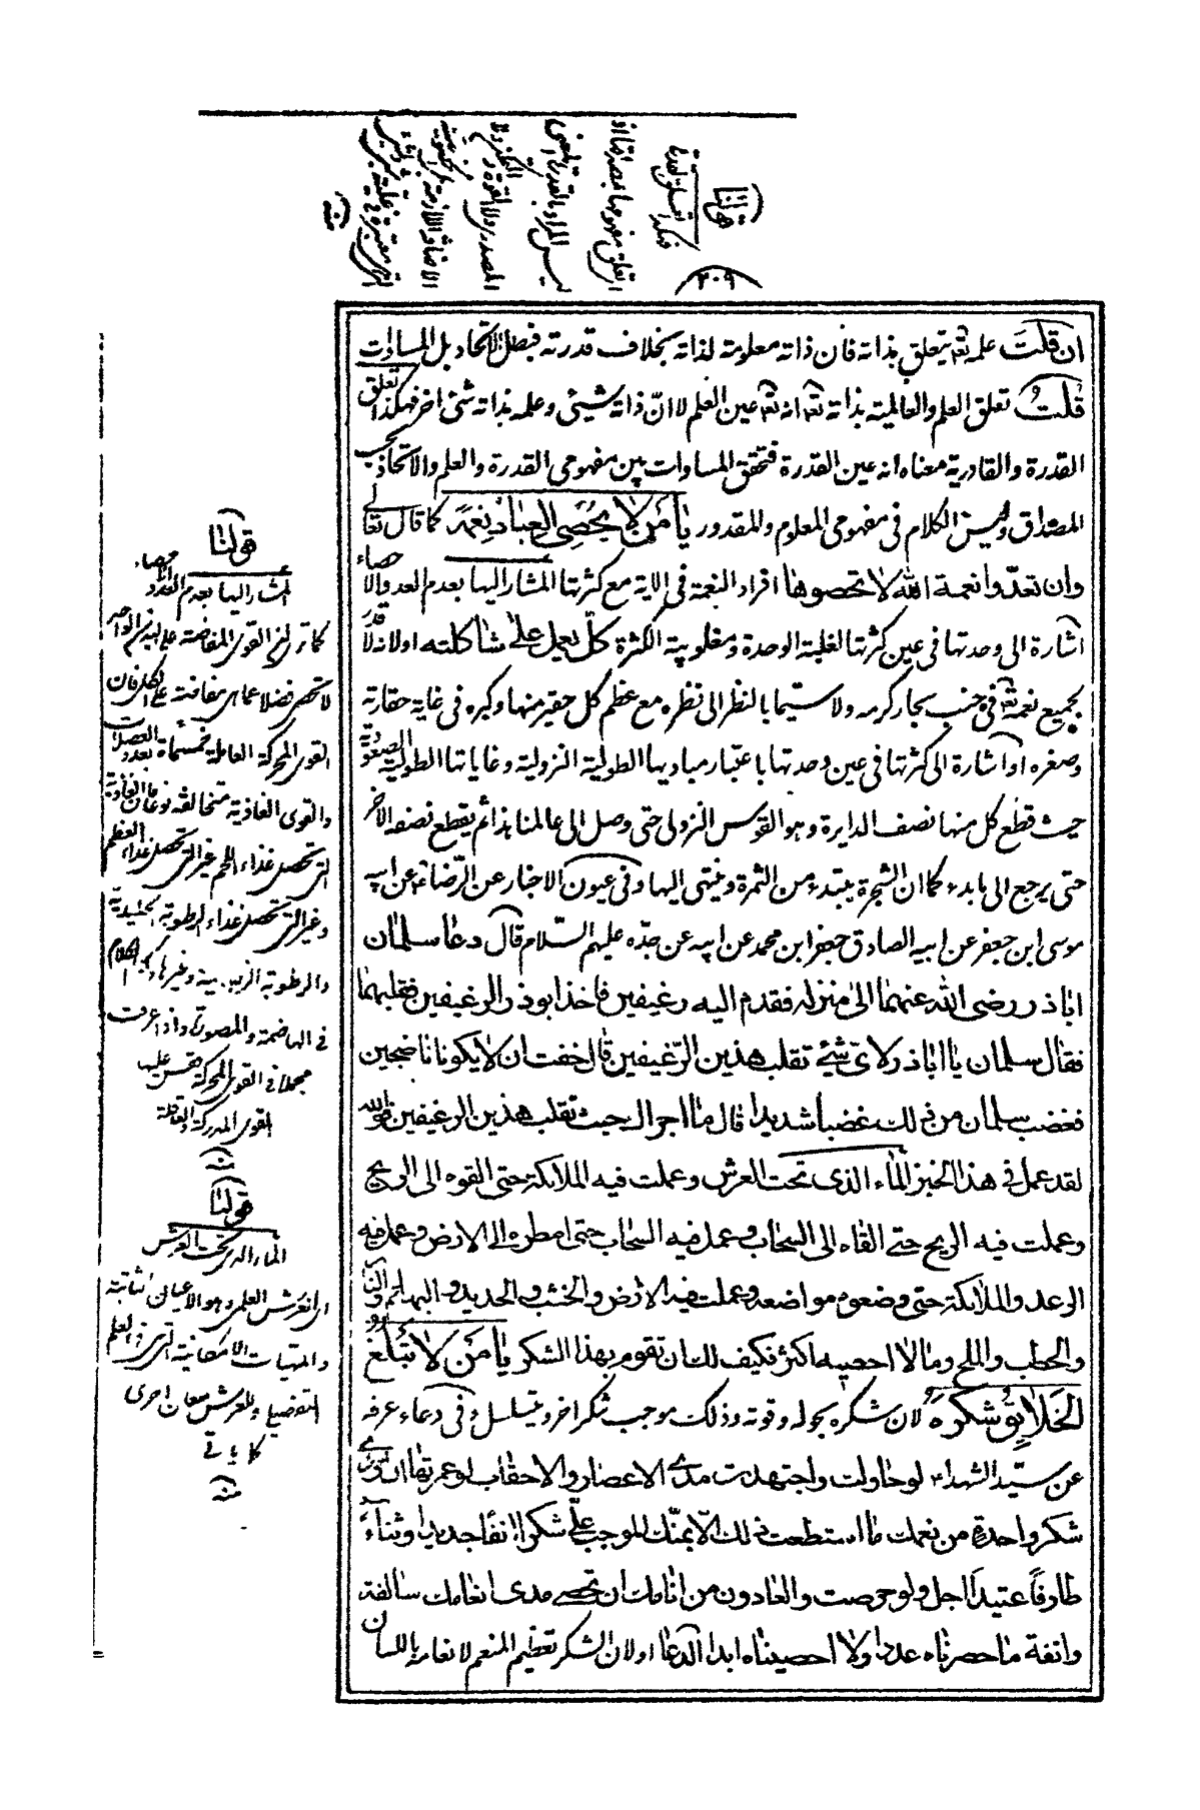 قولنا
فهكذا تعلق القدرة
٢٠٩
ان قلت علمه تعه يتعلق بذاته فان ذاته معلومة لذاته بخلاف قدرته فبطل الاتحاد بل المساوات
قلت تعلق العلم والعالمية بذاته تعه انه تعه عين العلم لا ان ذاته شيئ وعلمه بذاته شئ اخر فهكذا تعلق
القدرة والقادرية معناه انه عين القدرة فتحقق المساوات بين مفهومى القدرة والعلم والاتحاد بحسب
المصداق وليس الكلام فى مفهومى المعلوم والمقدور يا من لا يحصى العباد نعمه كما قال تعالى
وان تعدوا نعمة الله لا تحصوها افراد النعمة فى الاية مع كثرتها المشار اليها بعدم العد والاحصاء
اشارة الى وحدتها فى عين كثرتها لغلبة الوحدة ومغلوبية الكثرة كل يعمل على شاكلته او لانه لا قدر
لجميع نعمه تعه فى جنب بحار كرمه ولا سيما بالنظر الى نظره مع عظم كل حقير منها وكبره فى غاية حقارته
وصغره او اشارة الى كثرتها فى عين وحدتها باعتبار مباديها الطولية النزولية وغاياتها الطولية الصعودية
حيث قطع كل منها نصف الدايرة وهو القوس النزولى حتى وصل الى عالمنا هذا ثم يقطع نصفه الاخر
حتى يرجع الى بابدء كما ان الشجرة يبتدء من الثمرة وينتهى اليها وفى عيون الاخبار عن الرضاء عن ابيه
موسى ابن جعفر عن ابيه الصادق جعفر ابن محمد عن ابيه عن جده عليهم السلام قال دعا سلمان
اباذر رضى الله عنهما الى منزله فقدم اليه رغيفين فاخذ ابوذر الرغيفين فقلبهما
فقال سلمان يا اباذر لاى شيئ تقلب هذين الرغيفين قال خفت ان لا يكونا ناضجين
فغضب سلمان من ذلك غضبا شديدا قال ما اجراك حيث تقلب هذين الرغيفين فو الله
لقد عمل فى هذا الخبز الماء الذى تحت العرش وعملت فيه الملائكة حتى القوه الى الريح
وعملت فيه الريح حتى القاه الى السحاب وعمل فيه السحاب حتى امطره الى الارض وعمل فيه
الرعد والملائكة حتى وضعوه مواضعه وعملت فيه الارض والخشب والحديد والبهائم والنار
والحطب والملح وما لا احصيه اكثر فكيف لك ان تقوم بهذا الشكر يا من لا تبلغ
الخلايق شكره لان شكره بحوله وقوته وذلك موجب شكر اخر ويتسلسل وفى دعاء عرفه
عن سيد الشهداء لو حاولت واجتهدت مدى الاعصار والاحقاب لو عمرتها ان اودى
شكر واحدة من نعمك ما استطعت ذلك الا بمنك الموجب على شكرا انفا جديدا وثناء
طارفا عتيدا اجل ولو حرصت والعادون من انامك ان نحصى مدى انعامك سالفة
وانفة ما حصرناه عددا ولا احصيناه ابدا الدعا او لان الشكر تعظيم المنعم لانعامه باللسان
قولنا
المشار اليها بعدم العد والاحصاء
لا تحصى فضلا عما هى مفاضة على الكل فان
القوى المحركة العاملة خمسمأة بعدد العضلات
والقوى الغاذية متخالفة نوعا فان الغاذية
التى تحصل غذاء اللحم غير التى تحصل غذاء العظم
وغير التى تحصل غذاء الرطوبة الجليدية
والرطوبة الزبيبية وغيرها وكذا الكلام
فى الهاضمة والمصورة واذا عرفت
مجملا فى القوى المحركة فقس عليه
القوى المدركة والعاقلة
منه
قولنا
الماء الذى تحت العرش
اى العرش العلمى وهو الاعيان الثابتة
والمهيات الامكانية التى فى العلم
التفصيلى وللعرش معان اخرى
كما ياتى
منه